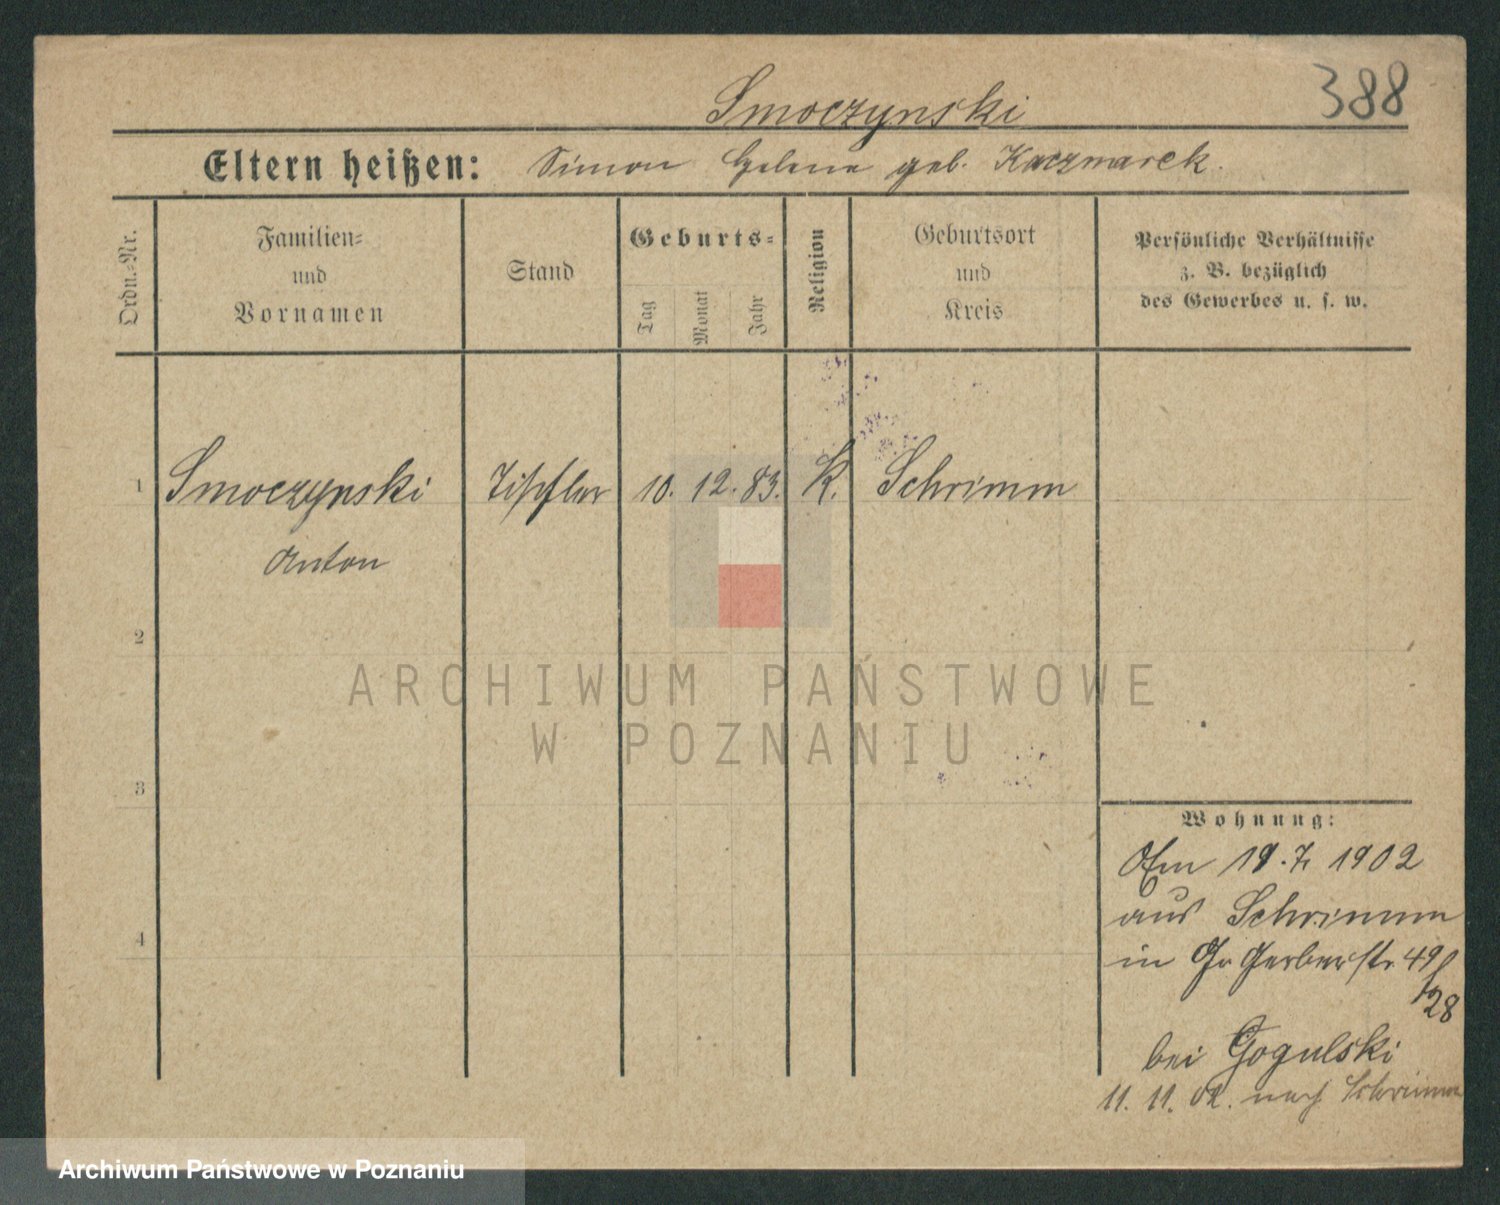 388
Smoczynski
Eltern heißen: Simon Helene geb. Kaczmarek.
Ordn.=Nr.
Familien=
und
Vornamen
Stand
Geburts=
Tag
Monat
Jahr
Religion
Geburtsort
und
Kreis
Persönliche Verhältnisse
z. B. bezüglich
des Gewerbes u. s. w.
1 Smoczynski Tischler 10. 12. 83. K. Schrimm
Anton
2
ARCHIWUM PAŃSTWOWE
W POZNANIU
3
Wohnung:
Am 19. 7. 1902
aus Schrimm
in Gr Gerberstr 49
28
4
bei Gogulski
11. 11. 02. nach Schrimm
Archiwum Państwowe w Poznaniu